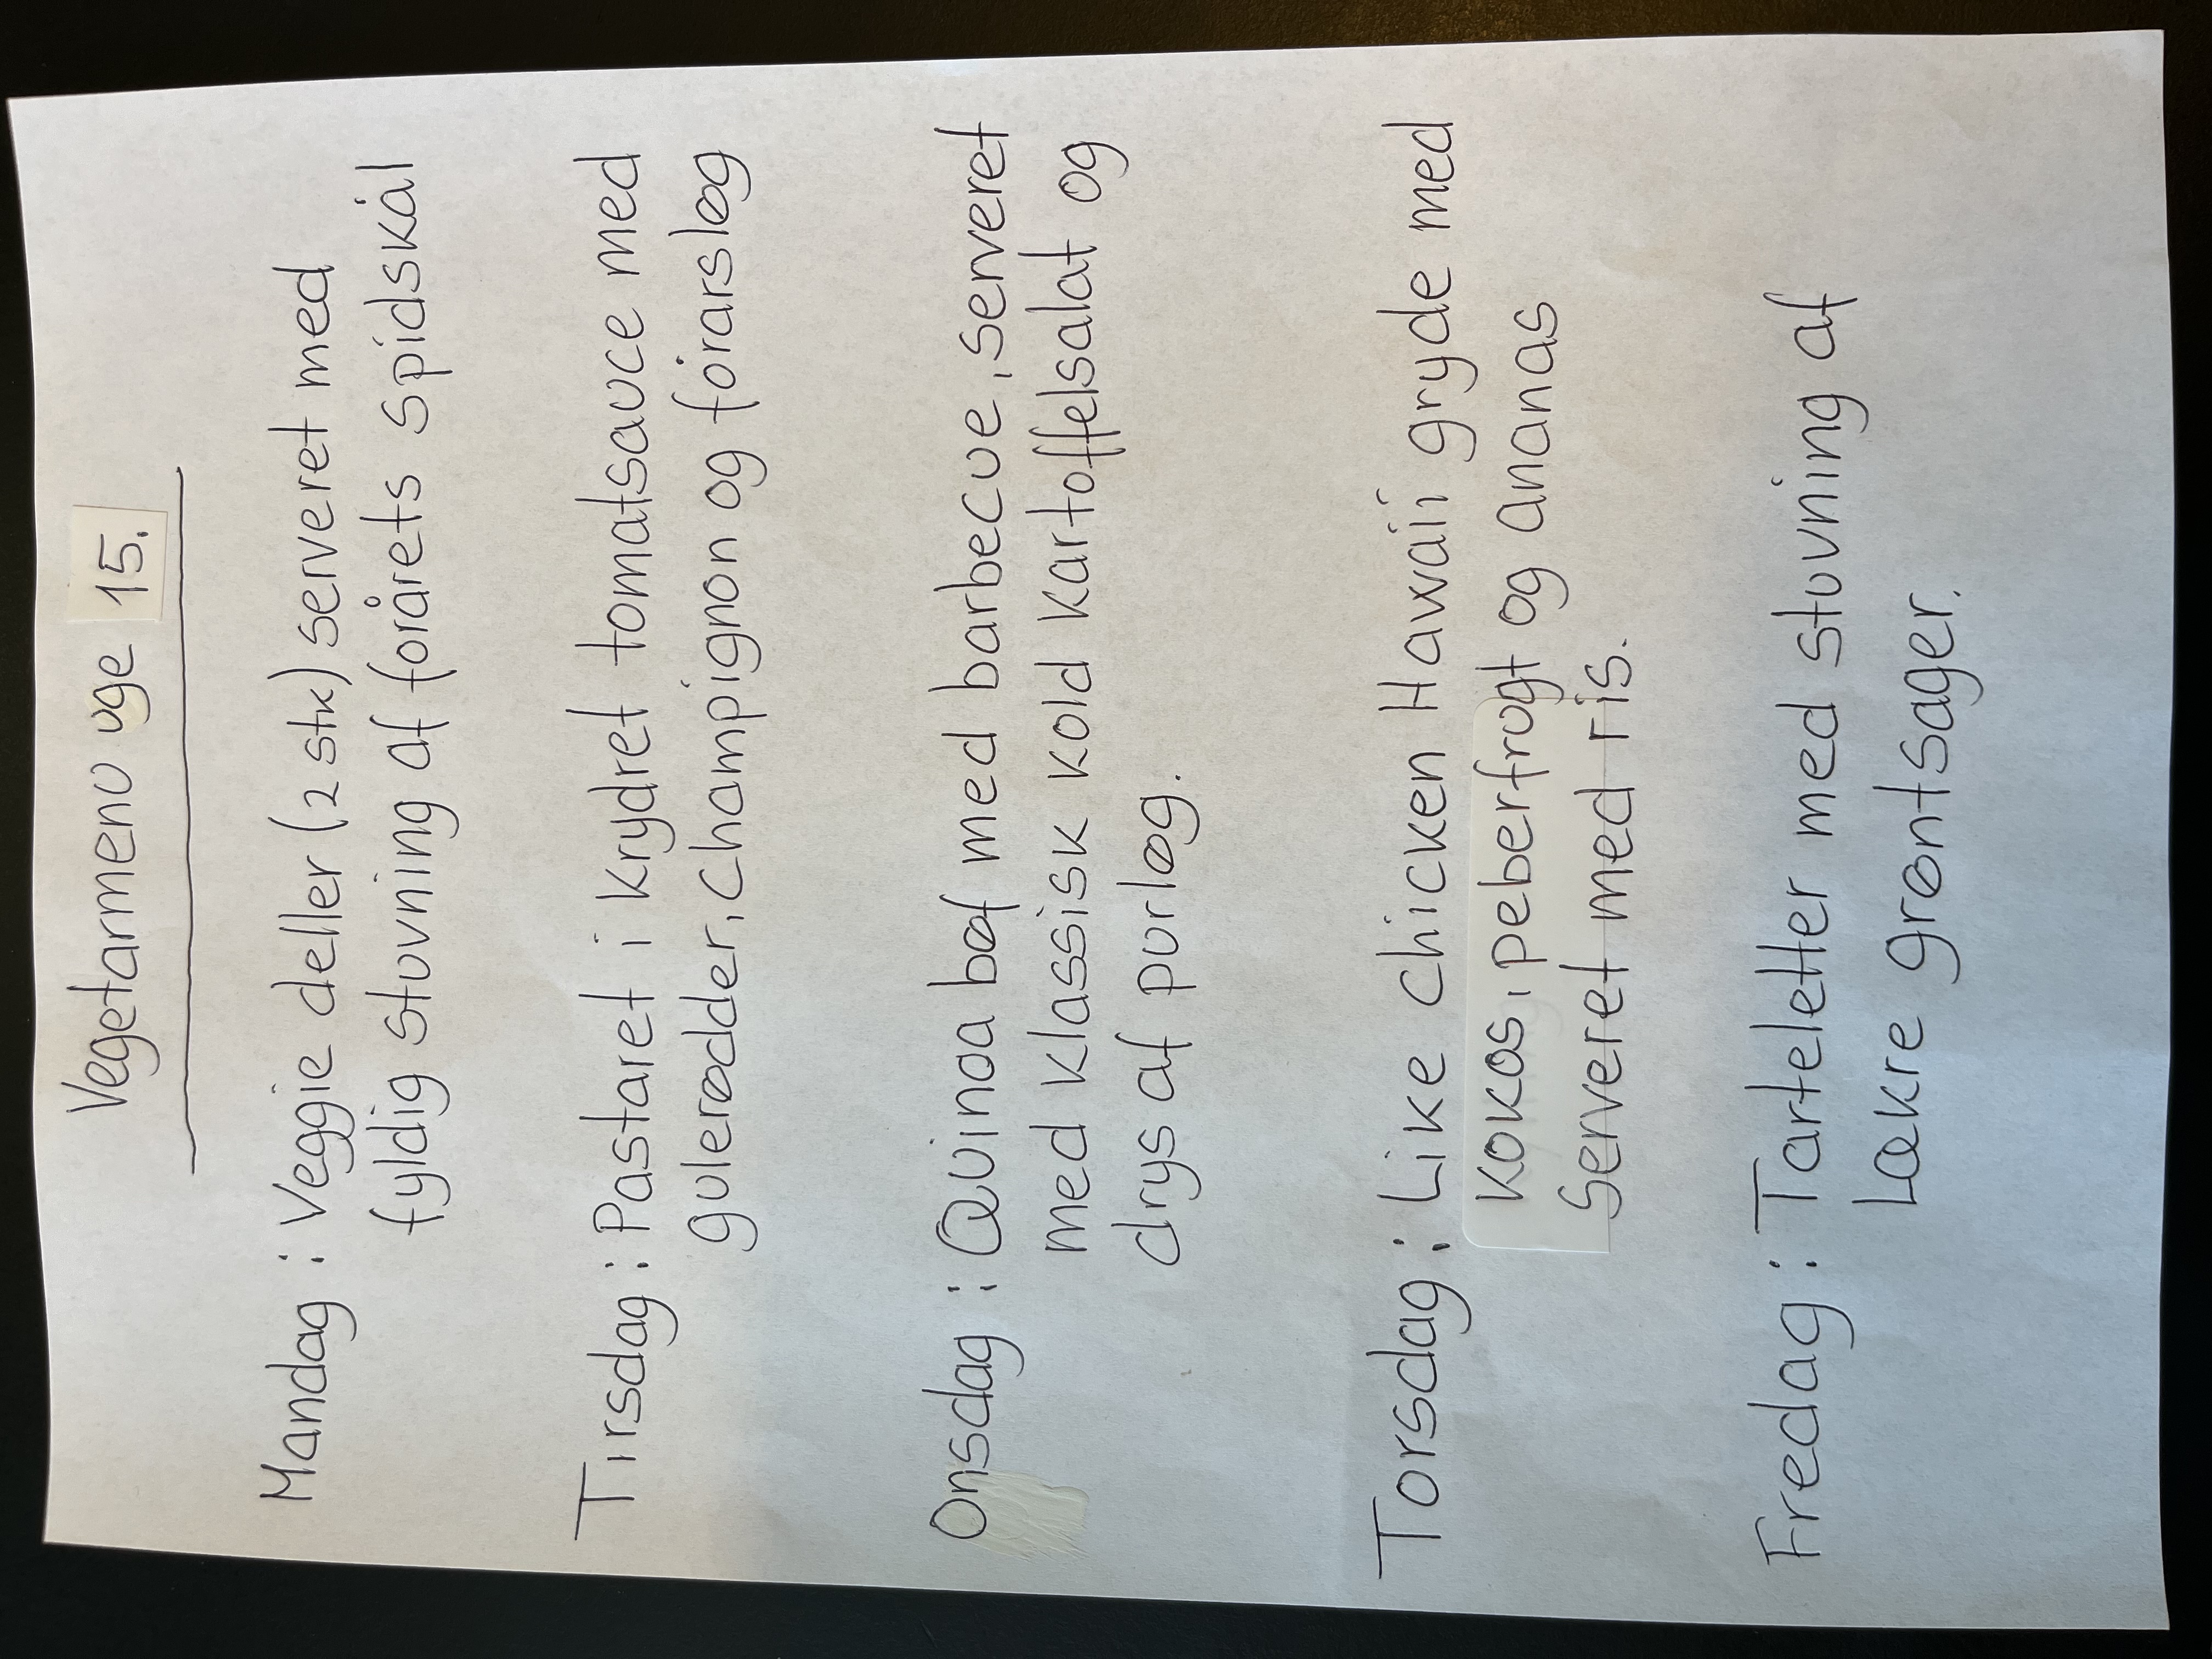 Vegetarmenu uge 15.
Mandag : Veggie deller (2 stk) serveret med
fyldig stuvning af forårets spidskål
Tirsdag : Pastaret i krydret tomatsauce med
gulerødder, champignon og forårsløg
Onsdag : Quinoa bøf med barbecue, serveret
med klassisk kold kartoffelsalat og
drys af purløg.
Torsdag : Like chicken Hawaii gryde med
kokos, peberfrugt og ananas
Serveret med ris.
Fredag : Tarteletter med stuvning af
Lækre grøntsager.